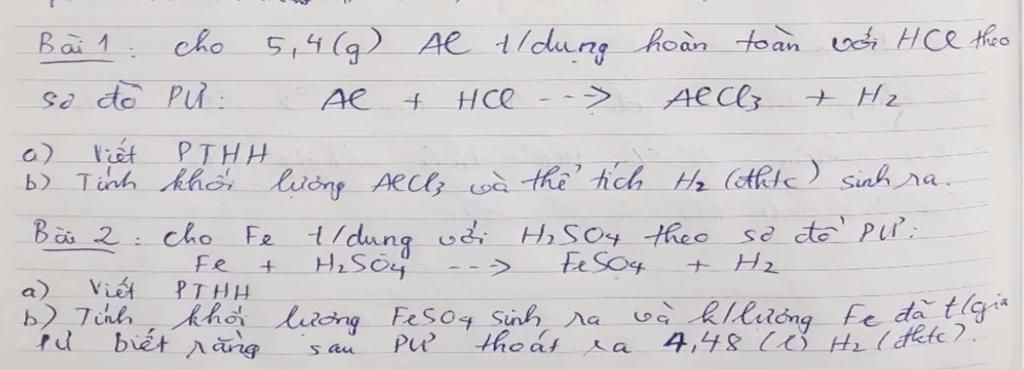 Bài 1 : cho 5,4(g) Al t/dụng hoàn toàn với HCl theo
sơ đồ PƯ : Al + HCl --> AlCl3 + H2
a) Viết PTHH
b) Tính khối lượng AlCl3 và thể tích H2 (đktc) sinh ra.
Bài 2 : cho Fe t/dung với H2SO4 theo sơ đồ PƯ :
Fe + H2SO4 --> FeSO4 + H2
a) Viết PTHH
b) Tính khối lượng FeSO4 sinh ra và k/lượng Fe đã t/gia
PƯ biết rằng sau PƯ thoát ra 4,48 (l) H2 (đktc).